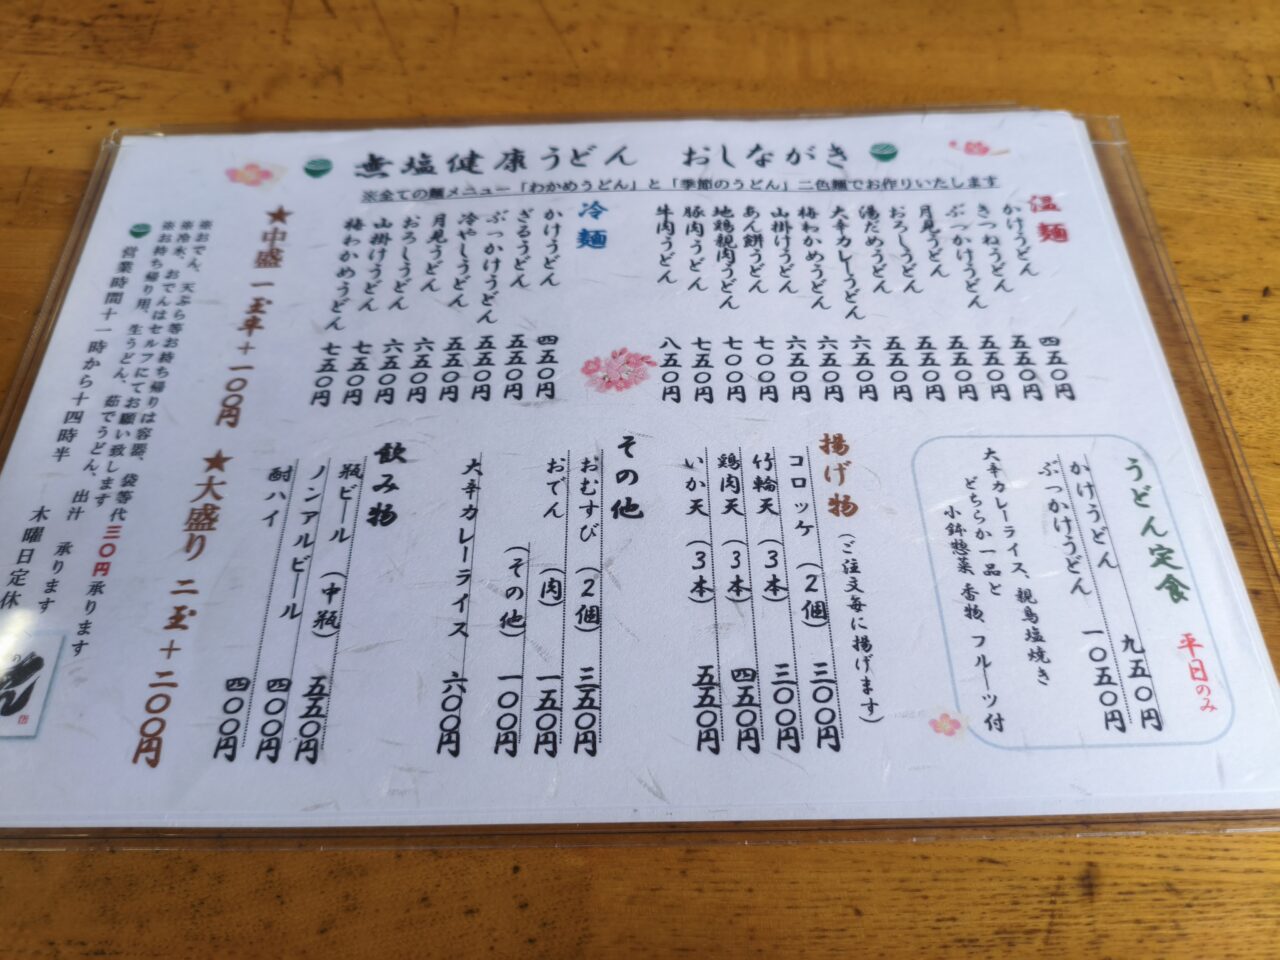 無塩健康うどん　おしながき
※全ての麺メニュー「わかめうどん」と「季節のうどん」二色麺でお作りいたします
温麺
かけうどん　四五〇円
きつねうどん　五五〇円
ぶっかけうどん　五五〇円
月見うどん　五五〇円
おろしうどん　五五〇円
湯だめうどん　五五〇円
大辛カレーうどん　六五〇円
梅わかめうどん　六五〇円
山掛けうどん　六五〇円
あん餅うどん　七〇〇円
地鶏親肉うどん　七〇〇円
豚肉うどん　七五〇円
牛肉うどん　八五〇円
冷麺
かけうどん　四五〇円
ざるうどん　五五〇円
ぶっかけうどん　五五〇円
冷やしうどん　五五〇円
月見うどん　六五〇円
おろしうどん　六五〇円
山掛けうどん　七五〇円
梅わかめうどん　七五〇円
うどん定食　平日のみ
かけうどん　九五〇円
ぶっかけうどん　一〇五〇円
大辛カレーライス、親鳥塩焼き
どちらか一品と
小鉢惣菜 香物、フルーツ付
揚げ物（ご注文毎に揚げます）
コロッケ（２個）三〇〇円
竹輪天（３本）三〇〇円
鶏肉天（３本）四五〇円
いか天（３本）五五〇円
その他
おむすび（２個）三五〇円
おでん（肉）一五〇円
（その他）一〇〇円
大辛カレーライス　六〇〇円
飲み物
瓶ビール（中瓶）五五〇円
ノンアルビール　四〇〇円
酎ハイ　四〇〇円
★中盛　一玉半＋一〇〇円　★大盛り　二玉＋二〇〇円
※おでん、天ぷら等お持ち帰りは容器、袋等代三〇円承ります
※冷水、おでんはセルフにてお願い致します
※お持ち帰り用、生うどん、茹でうどん、出汁　承ります
営業時間十一時から十四時半　木曜日定休